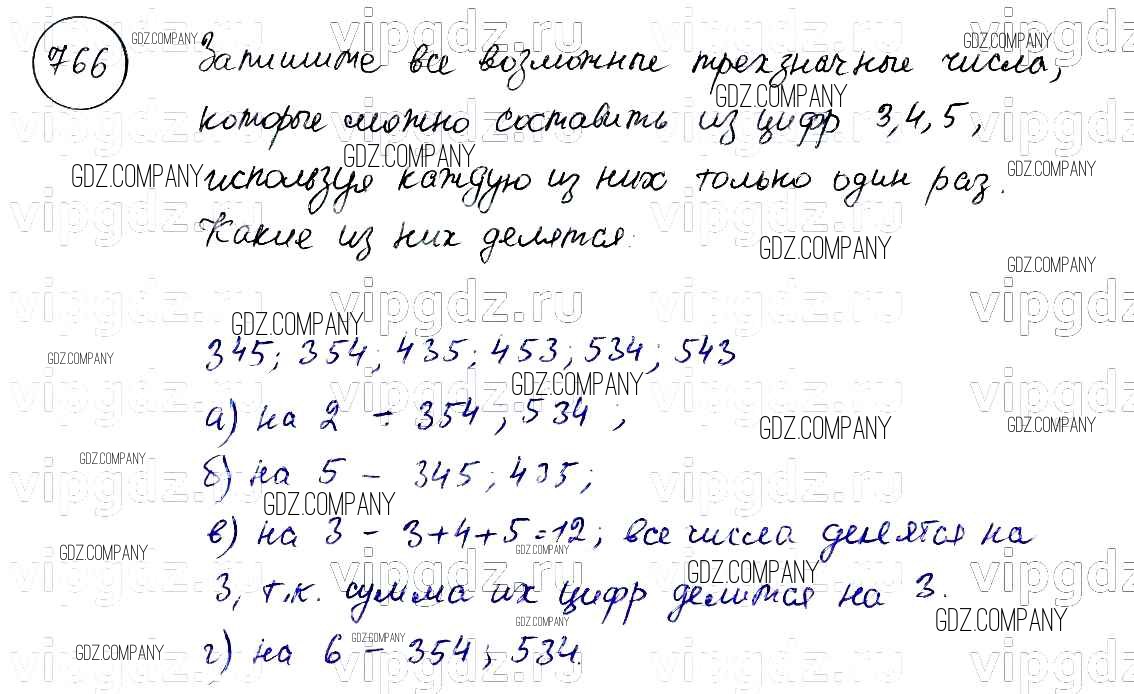 766
Запишите все возможные трехзначные числа,
которые можно составить из цифр 3,4,5,
используя каждую из них только один раз.
Какие из них делятся:
345; 354; 435; 453; 534; 543
а) на 2 - 354; 534;
б) на 5 - 345; 435;
в) на 3 - 3+4+5=12; все числа делятся на
3, т.к. сумма их цифр делится на 3.
г) на 6 - 354; 534.
GDZ.COMPANY
vipgdz.ru